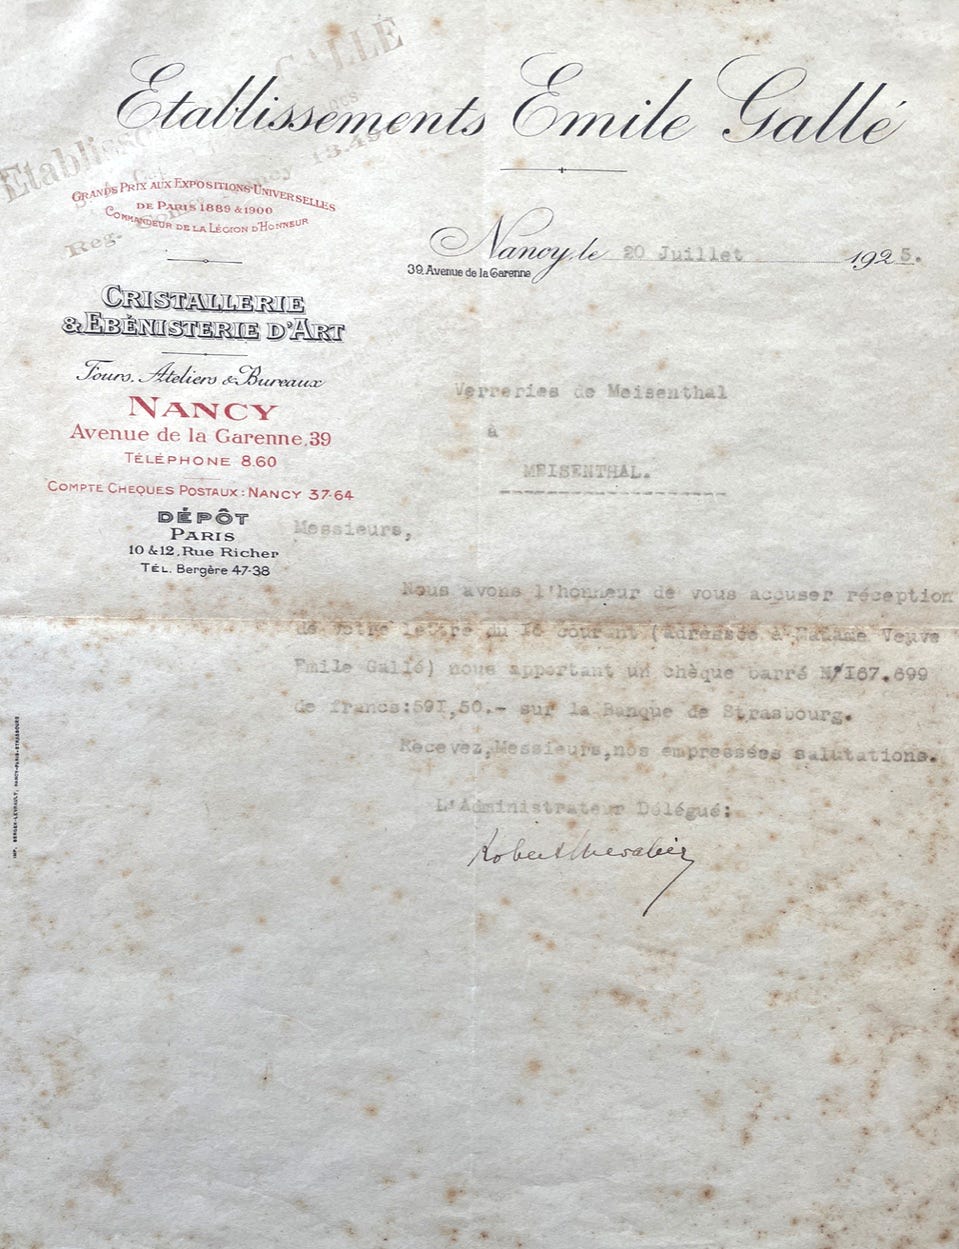 Etablissements Emile Gallé
GALLÉ
Etabliss
Reg.
Nancy
GRANDS PRIX AUX EXPOSITIONS UNIVERSELLES
DE PARIS 1889 & 1900
COMMANDEUR DE LA LÉGION D'HONNEUR
Nancy, le 20 Juillet 1925.
39, Avenue de la Garenne
CRISTALLERIE
& EBÉNISTERIE D'ART
Fours, Ateliers & Bureaux
NANCY
Avenue de la Garenne, 39
TÉLÉPHONE 8.60
COMPTE CHEQUES POSTAUX: NANCY 37-64
DÉPÔT
PARIS
10 & 12, Rue Richer
TÉL. Bergère 47-38
Verreries de Meisenthal
à
MEISENTHAL.
Messieurs,
Nous avons l'honneur de vous accuser réception
de votre lettre du courant (adressée à Madame Veuve
Emile Gallé) nous apportant un chèque barré N° I67.699
de francs:591,50.- sur la Banque de Strasbourg.
Recevez,Messieurs,nos empressées salutations.
L'Administrateur Délégué:
Robert Chevalier
IMP. BERGER-LEVRAULT, NANCY-PARIS-STRASBOURG